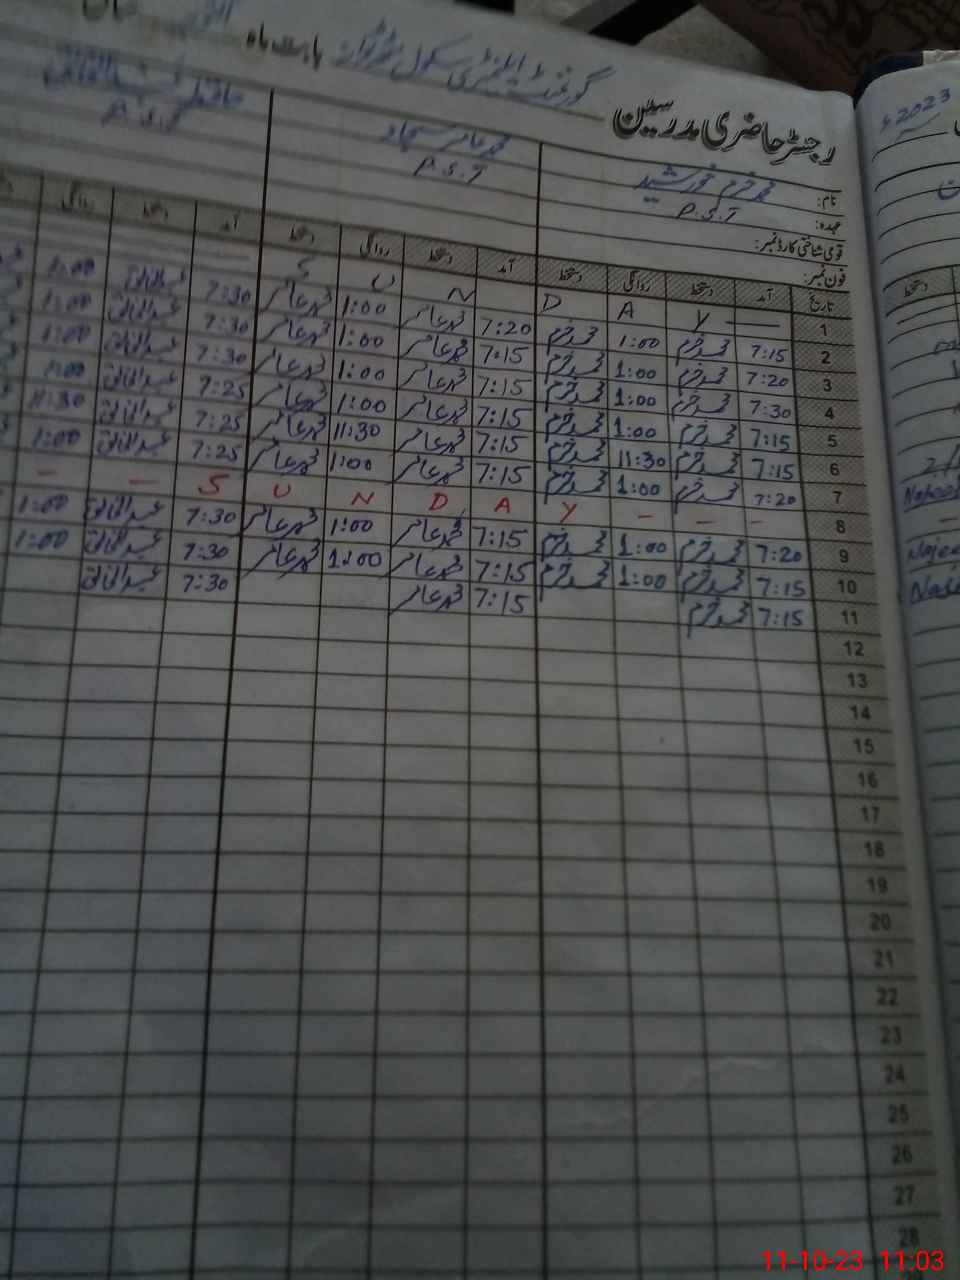 رجسٹر حاضری مدرسین گورنمنٹ ایلیمنٹری سکول بابت ماہ
نام: محمد خرم خورشید محمد عامر سجاد
عہدہ: P.S.T P.S.T
قومی شناختی کارڈ نمبر:
فون نمبر:
تاریخ آمد دستخط روانگی دستخط آمد دستخط روانگی دستخط آمد دستخط روانگی
1 S U N D A Y
2 7:15 محمد خرم 1:00 محمد خرم 7:20 محمد عامر 1:00 محمد عامر 7:30 1:00
3 7:20 محمد خرم 1:00 محمد خرم 7:15 محمد عامر 1:00 محمد عامر 7:30 1:00
4 7:30 محمد خرم 1:00 محمد خرم 7:15 محمد عامر 1:00 محمد عامر 7:30 1:00
5 7:15 محمد خرم 1:00 محمد خرم 7:15 محمد عامر 1:00 محمد عامر 7:25 1:00
6 7:15 محمد خرم 11:30 محمد خرم 7:15 محمد عامر 11:30 محمد عامر 7:25 11:30
7 7:20 محمد خرم 1:00 محمد خرم 7:15 محمد عامر 1:00 محمد عامر 7:25 1:00
8 - - S U N D A Y - - -
9 7:20 محمد خرم 1:00 محمد خرم 7:15 محمد عامر 1:00 محمد عامر 7:30 1:00
10 7:15 محمد خرم 1:00 محمد خرم 7:15 محمد عامر 1:00 محمد عامر 7:30 1:00
11 7:15 محمد خرم 7:15 محمد عامر 7:30
12
13
14
15
16
17
18
19
20
21
22
23
24
25
26
27
28
2023ء
دستخط
11-10-23 11:03